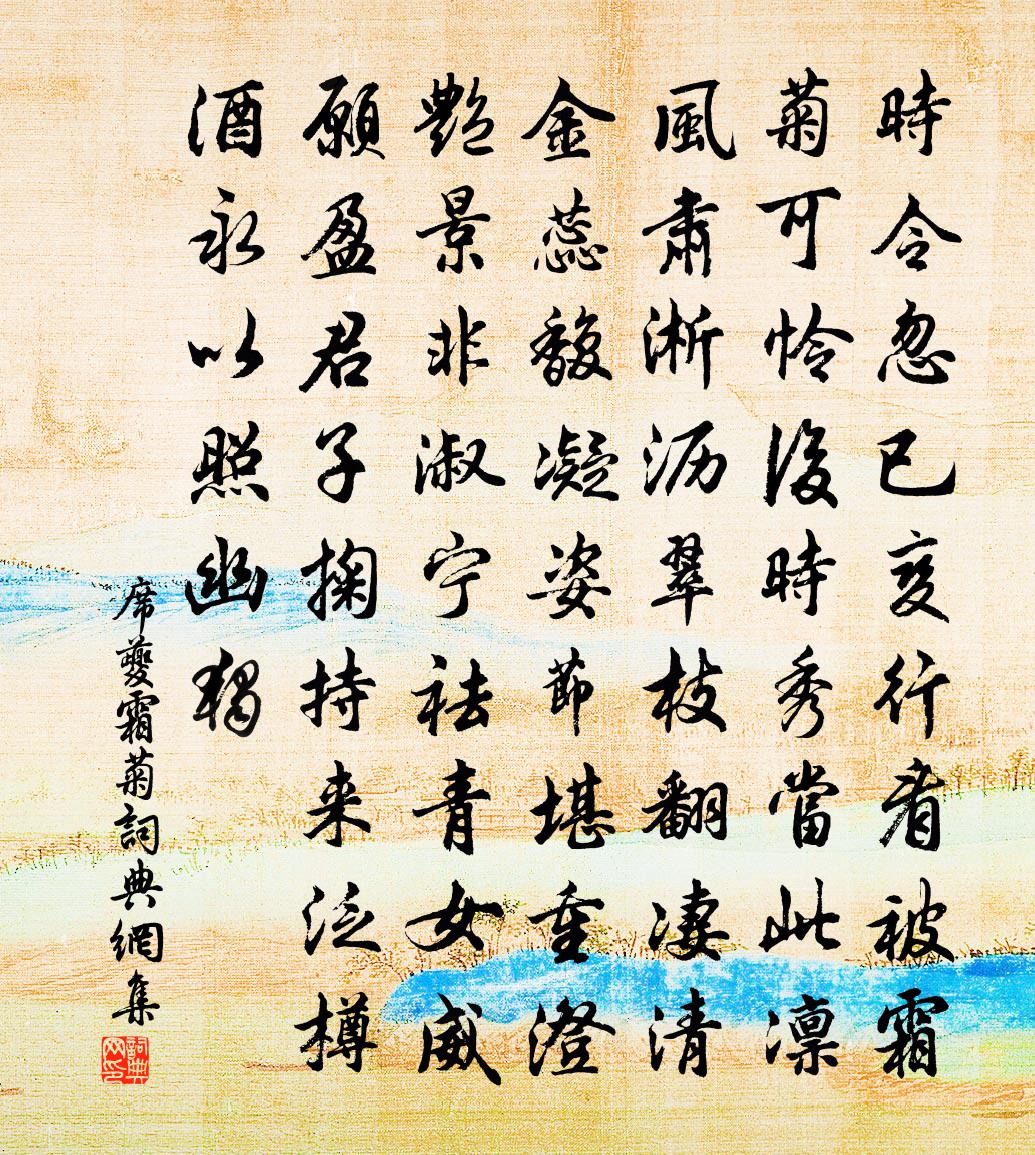 時令忽已变行看被霜
菊可怜後時秀當此凛
風肅淅沥翠枝翻凄清
金蕊馥凝姿節堪重澄
艷景非淑宁祛青女威
願盈君子掬持来泛樽
酒永以照幽獨
席夔霜菊詞典網集
詞典网印